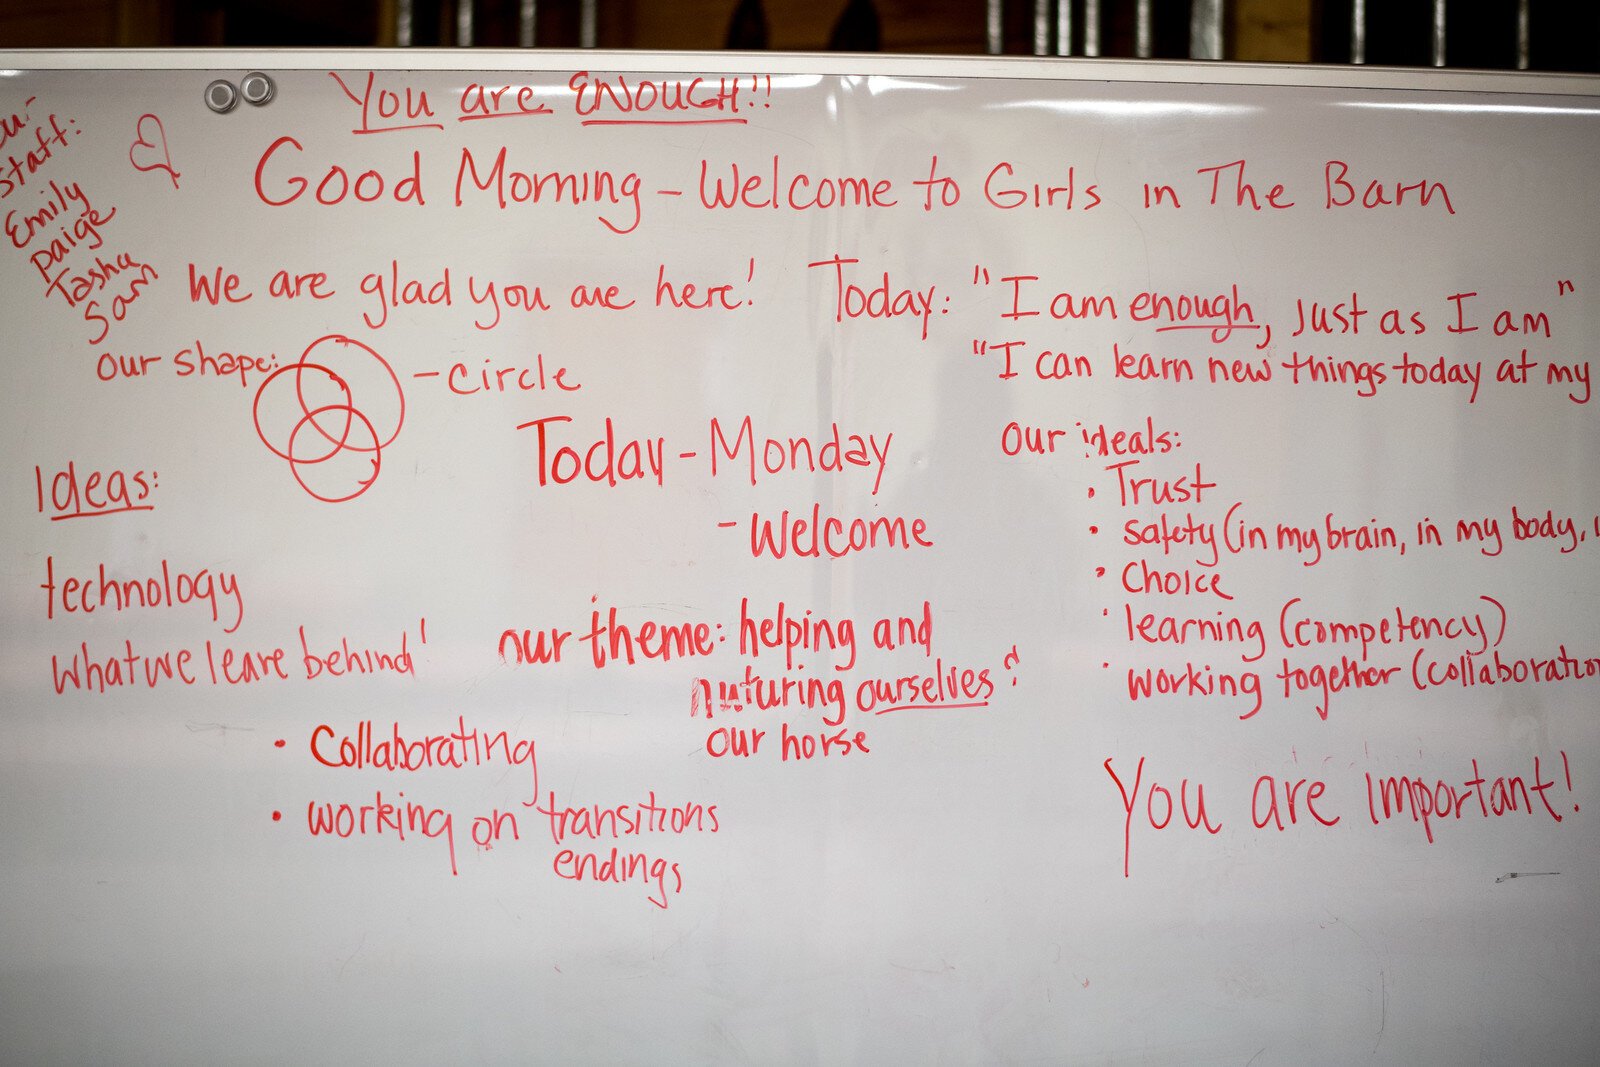 You are ENOUGH!!
Good Morning - Welcome to Girls in The Barn
staff:
Emily
Paige
Tasha
Sam
We are glad you are here!
Today: "I am enough, just as I am"
"I can learn new things today at my
our shape:
- circle
Today - Monday
- Welcome
our ideals:
• Trust
• safety (in my brain, in my body,
• Choice
• learning (competency)
• working together (collaboration
Ideas:
technology
What we leave behind!
• Collaborating
• working on transitions
endings
our theme: helping and
nuturing ourselves &
our horse
You are important!